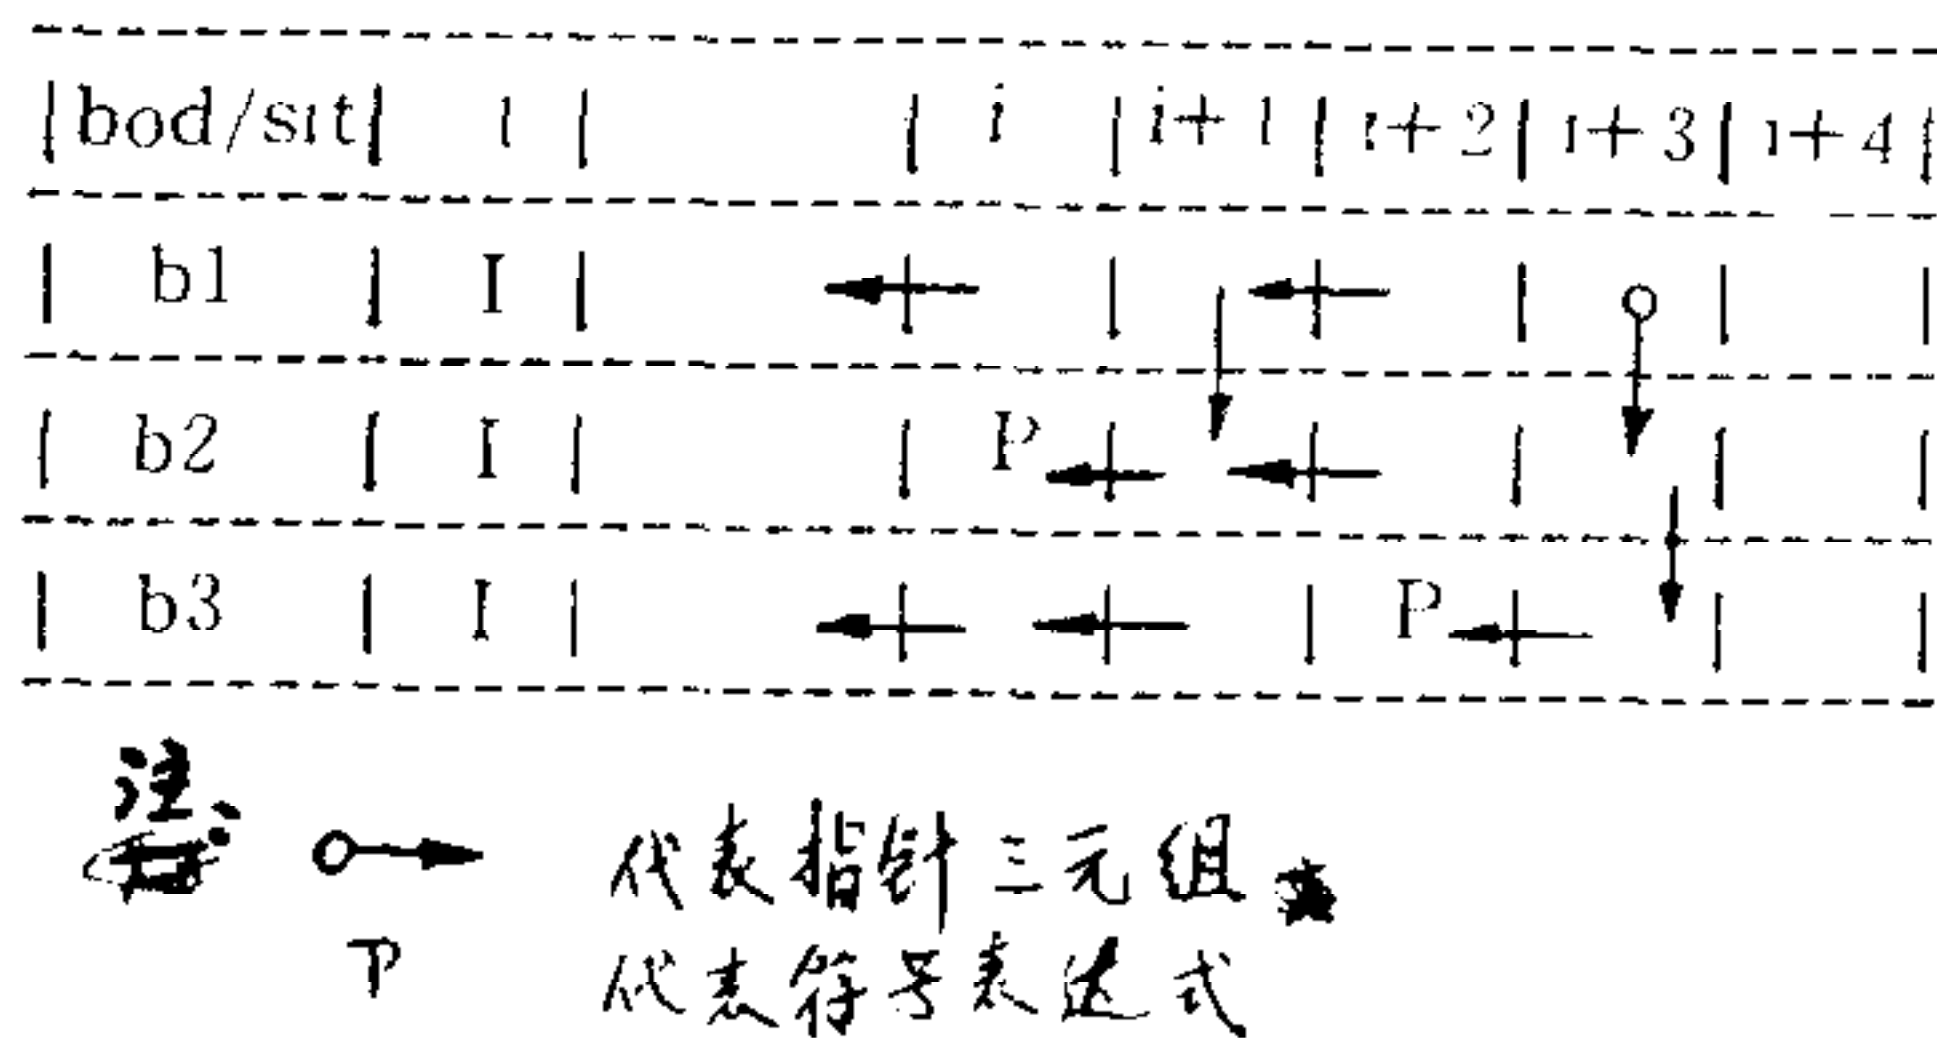 bod/sit 1 i i+1 i+2 i+3 i+4
b1 I
b2 I P
b3 I P
注:
代表指针三元组
P 代表符号表达式